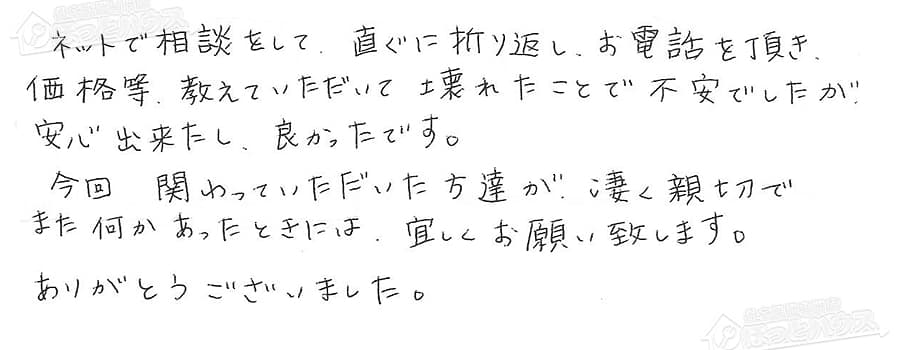 ネットで相談をして、直ぐに折り返し、お電話を頂き、
価格等、教えていただいて壊れたことで不安でしたが、
安心出来たし、良かったです。
今回 関わっていただいた方達が、凄く親切で
また何かあったときには、宜しくお願い致します。
ありがとうございました。